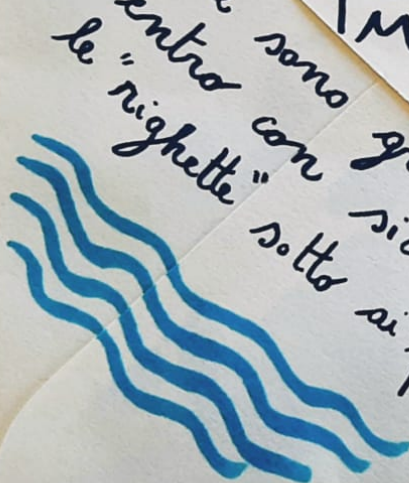 sono
entro con
le "righette" sotto ai